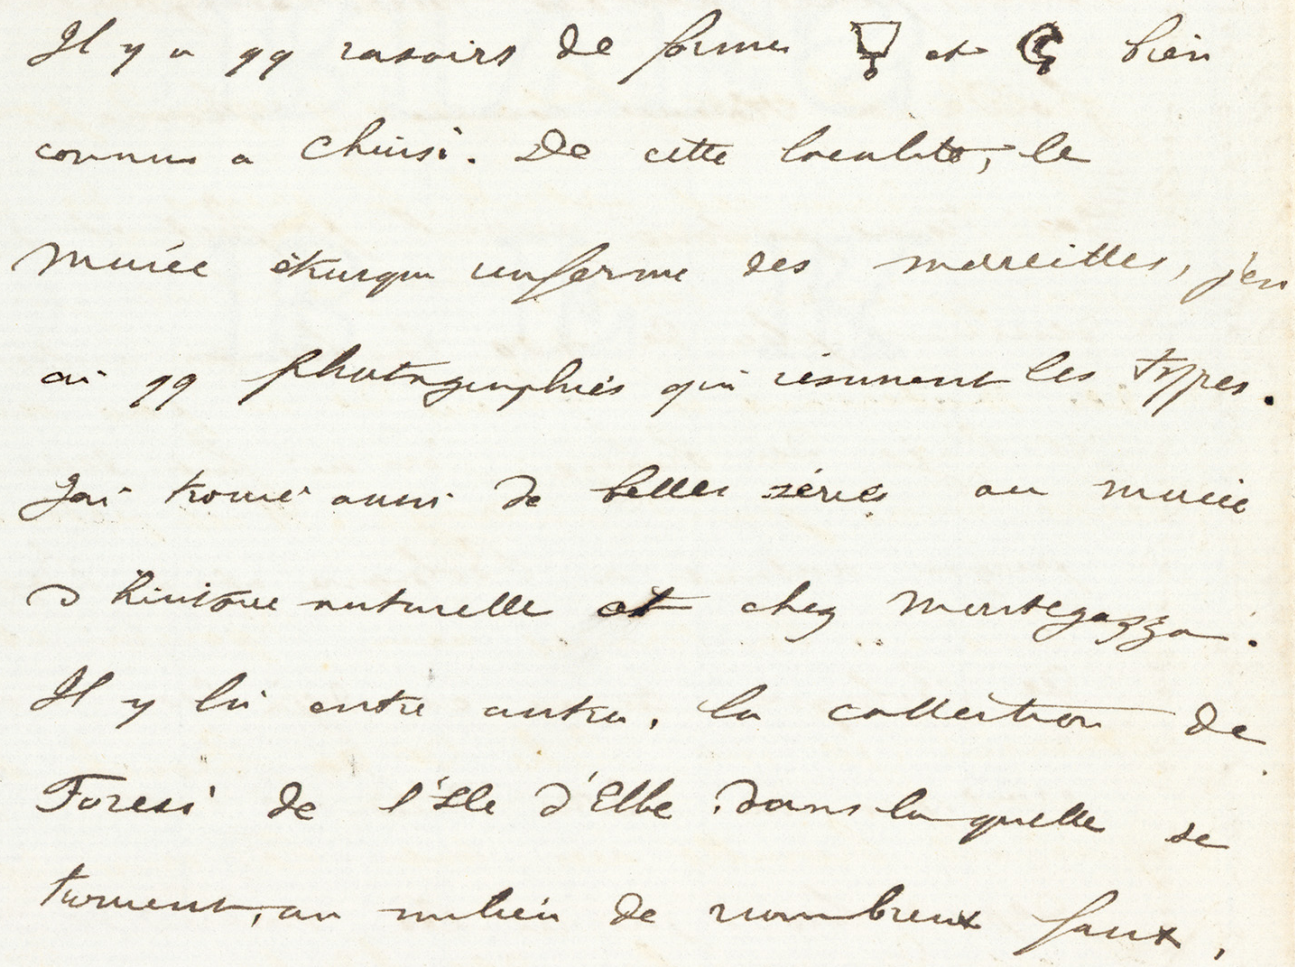 Il y a qq rasoirs de formes et bien
connus a Chiusi. De cette localité, le
Musée étrusque renferme des merveilles, j'en
ai qq photographies qui résument les types.
J'ai trouvé aussi de belles séries au musée
d'histoire naturelle et chez Mantegazza.
Il y là entre autres, la collection de
Foresi de l'île d'Elbe dans laquelle se
trouvent, au milieu de nombreux faux,